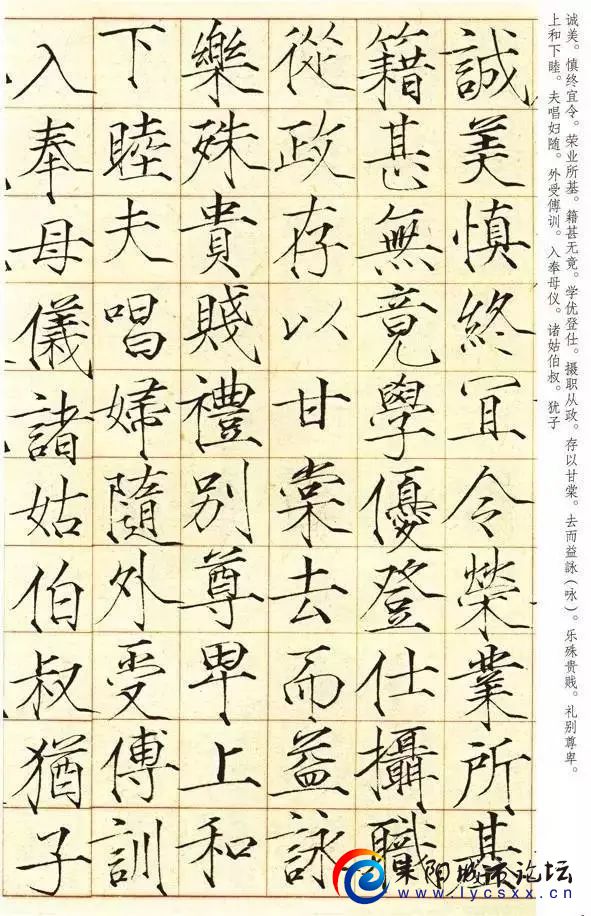 诚美。慎终宜令。荣业所基。籍甚无竟。学优登仕。摄职从政。存以甘棠。去而益詠(咏)。乐殊贵贱。礼别尊卑。
上和下睦。夫唱妇随。外受傅训。入奉母仪。诸姑伯叔。犹子
誠美慎終冝令榮業所基
籍甚無竟學優登仕攝職
從政存以甘棠去而益詠
樂殊貴賤禮别尊卑上和
下睦夫唱婦隨外受傅訓
入奉母儀諸姑伯叔猶子
耒阳城市论坛
www.lycsxx.cn